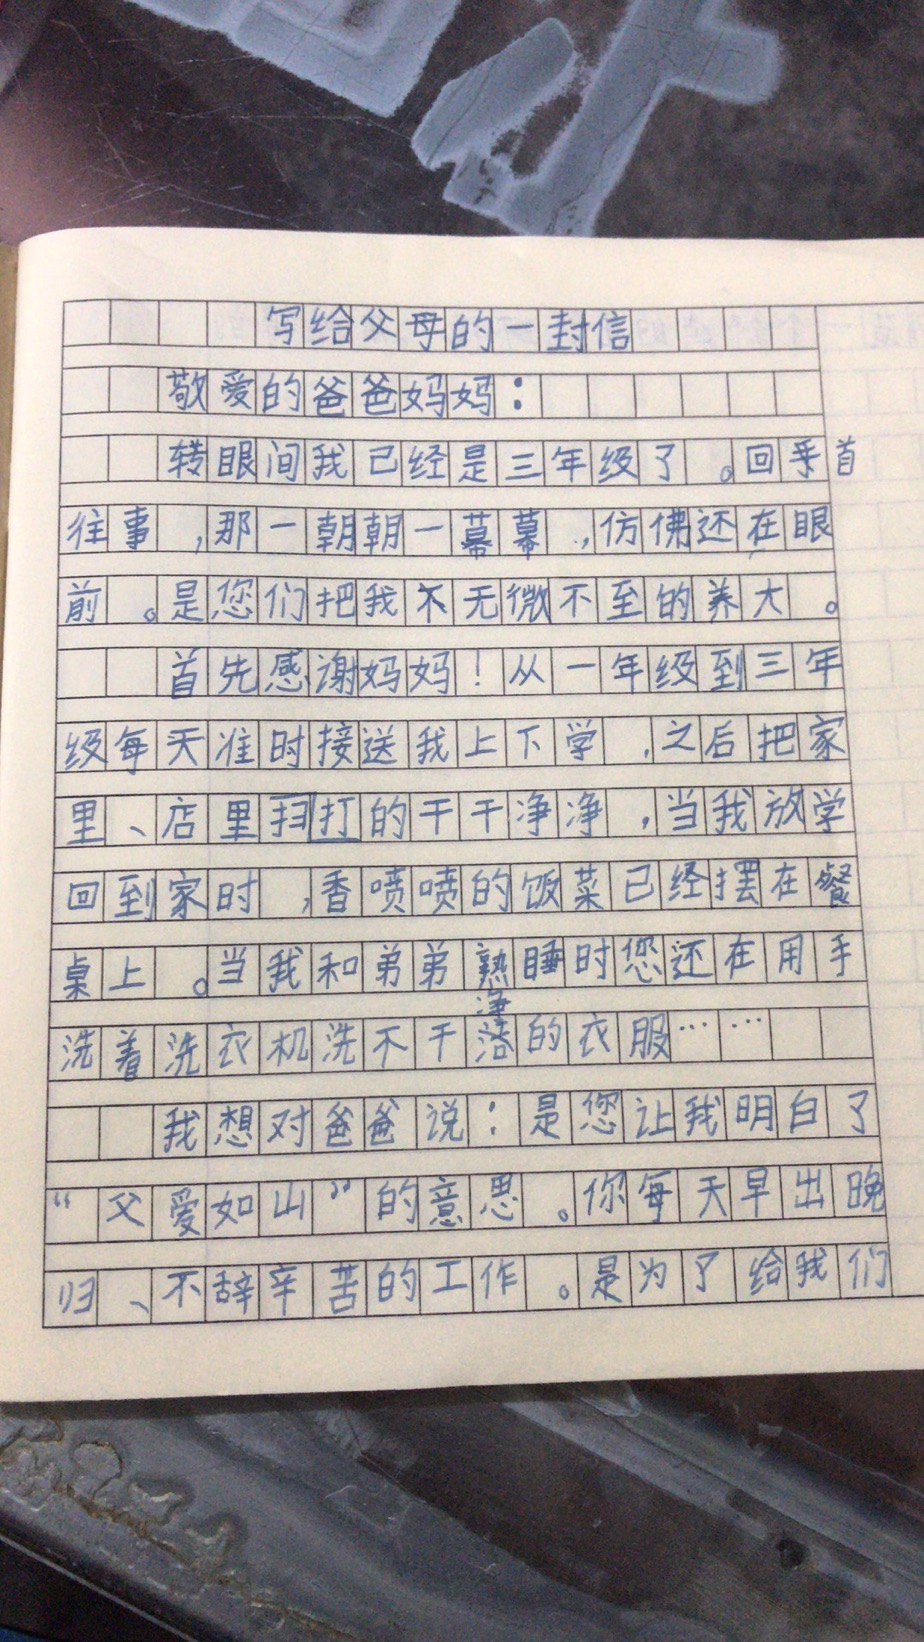 写给父母的一封信
敬爱的爸爸妈妈：
转眼间我已经是三年级了。回乎首
往事,那一朝朝一幕幕.,仿佛还在眼
前。是您们把我不无微不至的养大。
首先感谢妈妈！从一年级到三年
级每天准时接送我上下学,之后把家
里、店里扫打的干干净净,当我放学
回到家时,香喷喷的饭菜已经摆在餐
桌上。当我和弟弟熟睡时您还在用手
洗着洗衣机洗不干净的衣服……
我想对爸爸说：是您让我明白了
“父爱如山”的意思。你每天早出晚
归、不辞辛苦的工作。是为了给我们